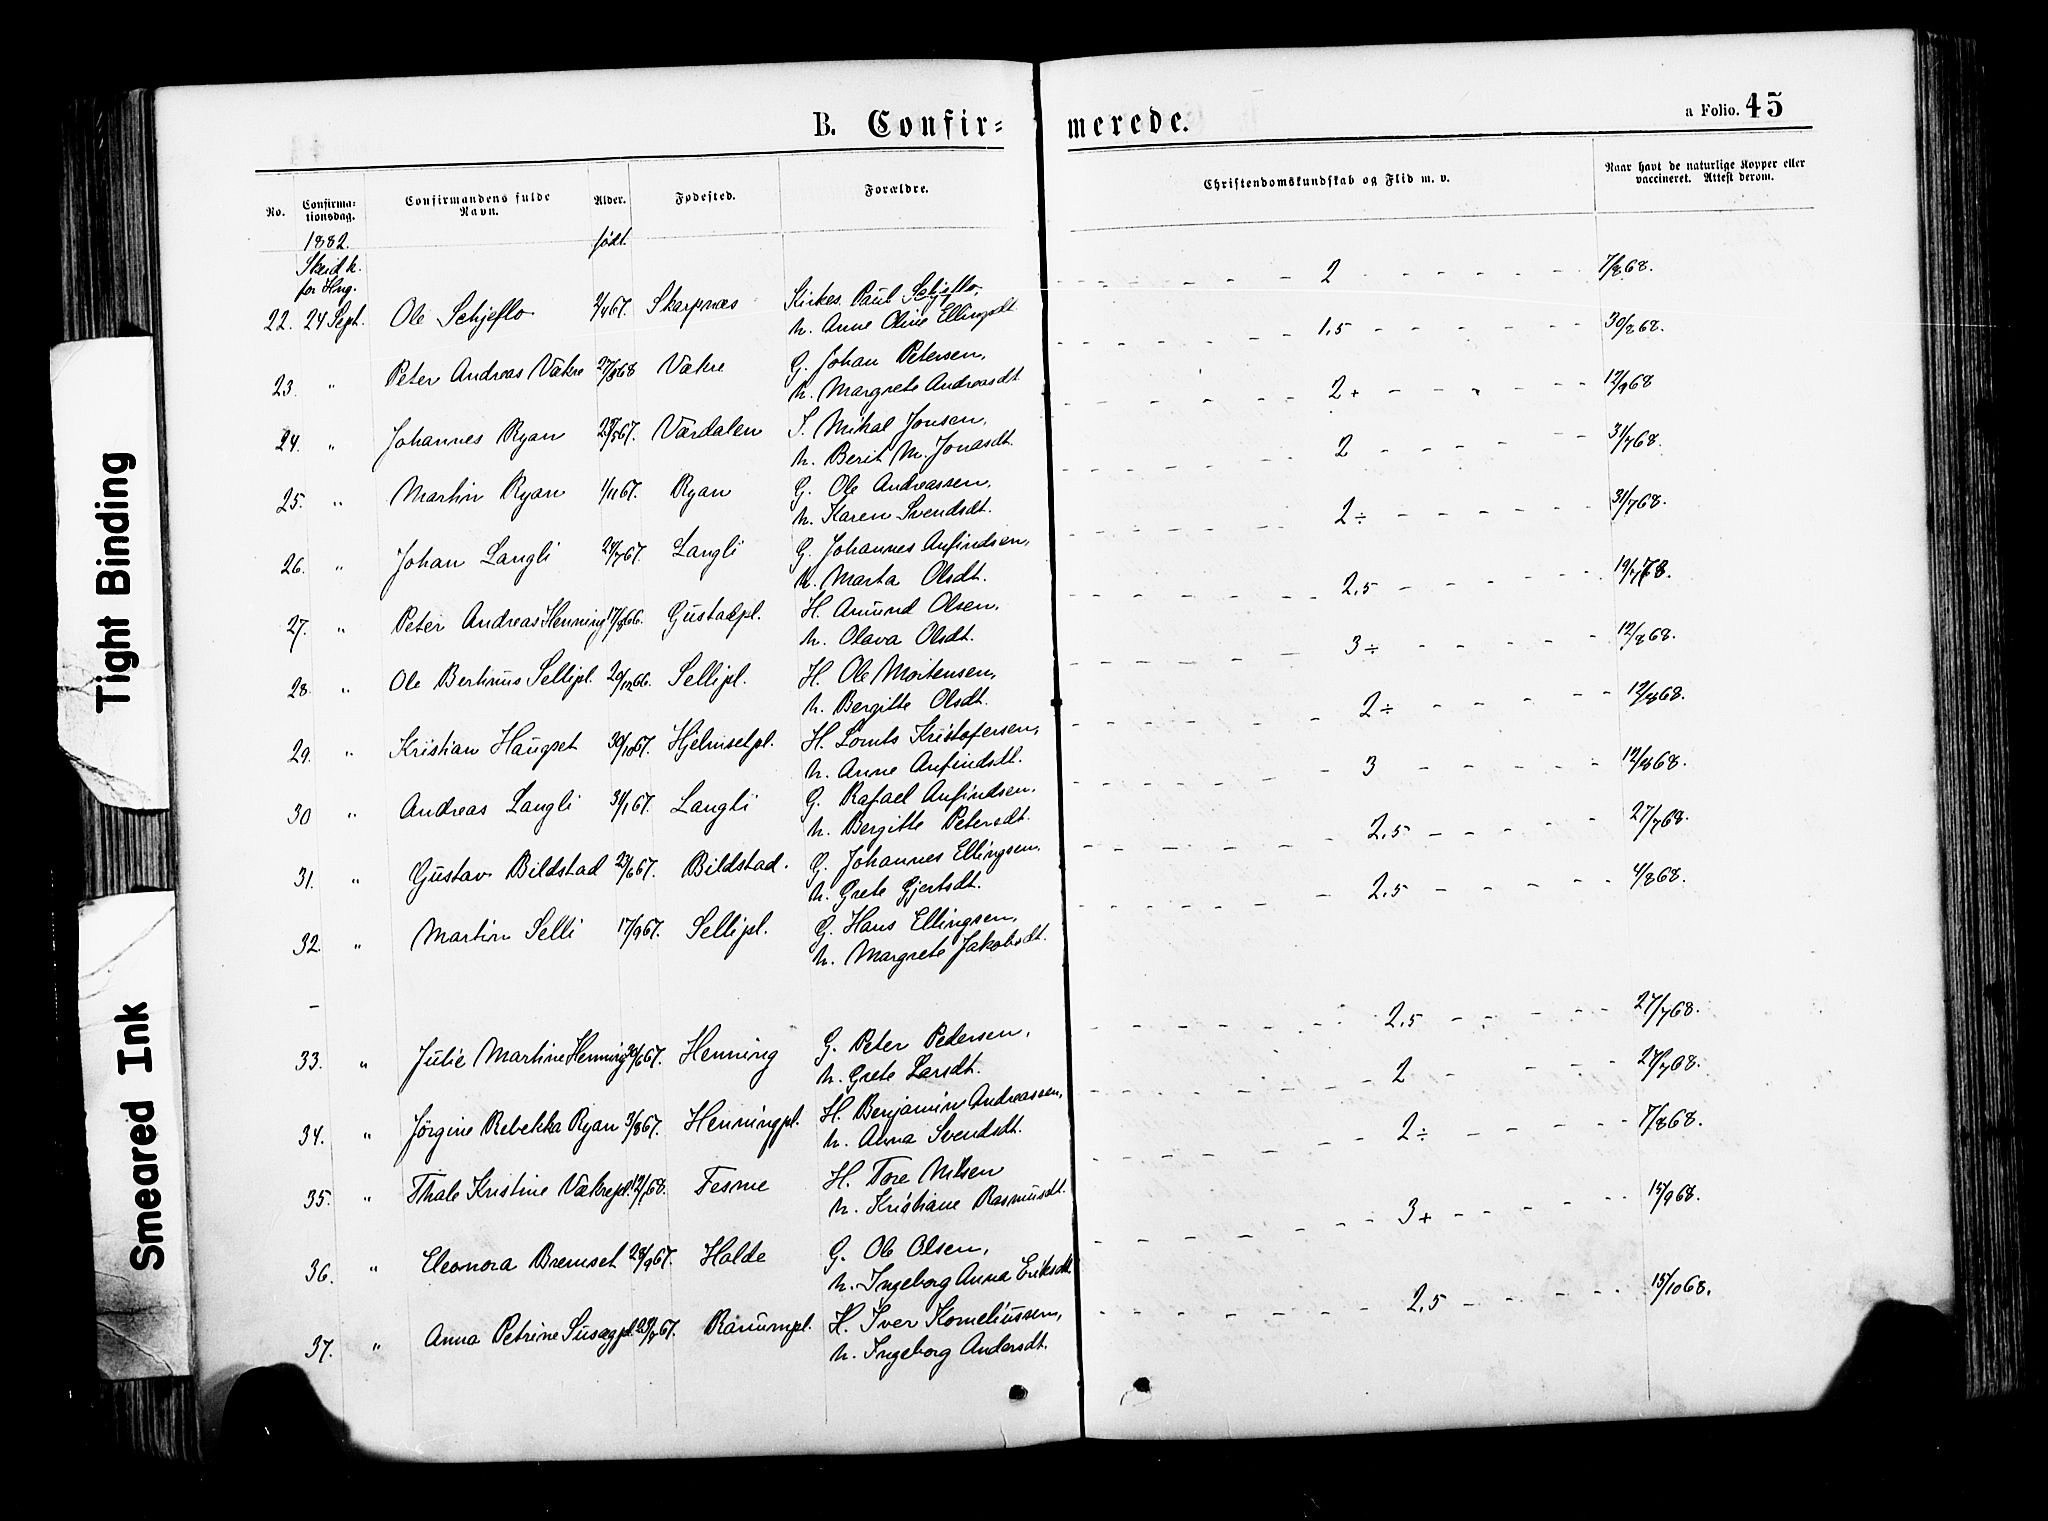 B. Confir=
merede.
a Folio. 45
No.
Confirma-
tionsdag.
Confirmandens fulde
Navn.
Alder.
Fødested.
Forældre.
Christendomskundskab og Flid m. v.
Naar havt de naturlige Kopper eller
vaccineret. Attest derom.
1882.
født.
Skeid k.
for Hng.
22. 24 Sept. Ole Schjeflo 2/4 67. Skarpnæs Kirkes. Paul Schjeflo, 2 7/8 68.
h. Anne Oline Ellingsdt.
23. " Peter Andreas Vækre 27/8 68 Vækre G. Johan Petersen, 1,5 30/8 68.
h. Margrete Andreasdt.
24. " Johannes Ryan 27/5 67. Værdalen S. Mikal Jonsen, 2+ 12/9 68
h. Berit M. Jonasdt.
25. " Martin Ryan 1/11 67. Ryan G. Ole Andreassen, 2 31/7 68.
h. Karen Svendsdt.
26. " Johan Langli 24/7 67. Langli G. Johannes Anfindsen, 2÷ 31/7 68.
h. Marta Olsdt.
27. " Peter Andreas Henning 17/8 66. Gustadpl. H. Amund Olsen, 2,5 19/7 68.
h. Olava Olsdt.
28. " Ole Bertinus Sellipl. 20/12 66. Sellipl. H. Ole Mortensen, 3÷ 12/8 68.
h. Bergitte Olsdt.
29. " Kristian Haugset 30/10 67. Hjelmsetpl. H. Lornts Kristofersen, 2÷ 12/8 68.
h. Anne Anfindsdt.
30 " Andreas Langli 31/1 67. Langli G. Rafael Anfindsen, 3 12/8 68.
h. Bergitte Petersdt.
31. " Gustav Bildstad 23/6 67. Bildstad. G. Johannes Ellingsen, 2,5 27/7 68.
h. Grete Gjertsdt.
32. " Martin Selli 17/9 67. Sellipl. G. Hans Ellingsen, 2,5 4/8 68.
h. Margrete Jakobsdt.
33. " Julie Martine Henning 30/6 67. Henning G. Peter Pedersen, 2,5 27/7 68.
h. Grete Larsdt.
34. " Jørgine Rebekka Ryan 3/8 67. Henningpl. H. Benjamin Andreassen, 2 27/7 68.
h. Anna Svendsdt.
35. " Thale Kristine Vækrepl. 12/1 68. Fesme H. Tore Nilsen 2÷ 7/8 68.
h. Kristiane Rasmusdt.
36. " Eleonora Bremset 28/9 67. Halde G. Ole Olsen, 3+ 15/9 68.
h. Ingeborg Anna Eriksdt.
37. " Anna Petrine Susegpl. 23/7 67. Raiumpl. H. Iver Korneliussen, 2,5 15/10 68.
h. Ingeborg Andersdt.
Tight Binding
Smeared Ink